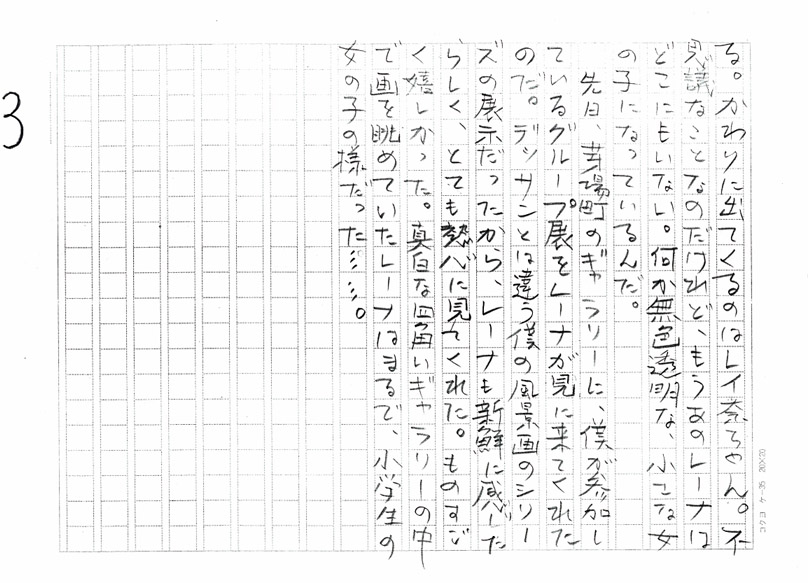 る。かわりに出てくるのはレイ奈ちゃん。不
思議なことなのだけれど、もうあのレーナは
どこにもいない。何か無色透明な、小さな女
の子になっているんだ。
先日、茅場町のギャラリーに、僕が参加し
ているグループ展をレーナが見に来てくれた
のだ。デッサンとは違う僕の風景画のシリー
ズの展示だったから、レーナも新鮮に感じた
らしく、とても熱心に見てくれた。ものすご
く嬉しかった。真白な四角いギャラリーの中
で画を眺めていたレーナはまるで、小学生の
女の子の様だった……。
3
コクヨ ケ-35 20×20